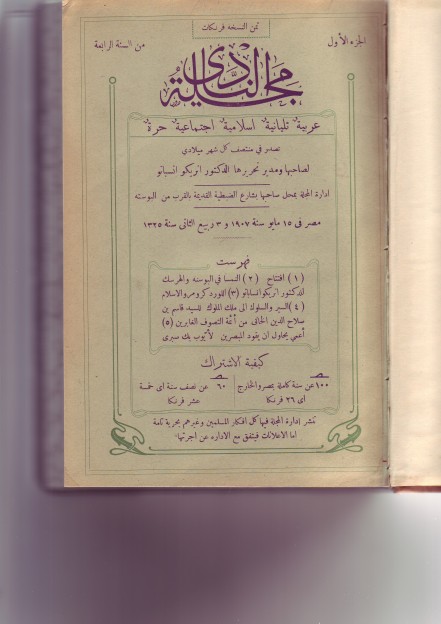 ثمن النسخه فرنكات
الجزء الأول
من السنة الرابعة
مجلة النادى
عربية تليانية اسلامية اجتماعية حرة
تصدر فى منتصف كل شهر ميلادي
لصاحبها ومدير تحريرها الدكتور انريكو انساباتو
ادارة المجلة بمحل صاحبها بشارع الضبطية القديمة بالقرب من البوسته
مصر فى ١٥ مايو سنة ١٩٠٧ و ٣ ربيع الثانى سنة ١٣٢٥
فهرست
(١) افتتاح (٢) النمسا فى البوسنه والهرسك
للدكتور انريكو انساباتو (٣) اللورد كرومر والاسلام
(٤) السير والسلوك الى ملك الملوك للسيد قاسم بن
صلاح الدين الخانى من أئمة التصوف الغابرين (٥)
أعمى يحاول ان يقود المبصرين لأيوب بك صبرى
كيفية الاشتراك
١٠٠ عن سنة كاملة بمصر والخارج
اى ٢٦ فرنكا
٦٠ عن نصف سنة اى خمسة
عشر فرنكا
تنشر ادارة المجلة فيها كل افكار المسلمين وغيرهم بحرية تامة
اما الاعلانات فيتفق مع الاداره عن اجرتها